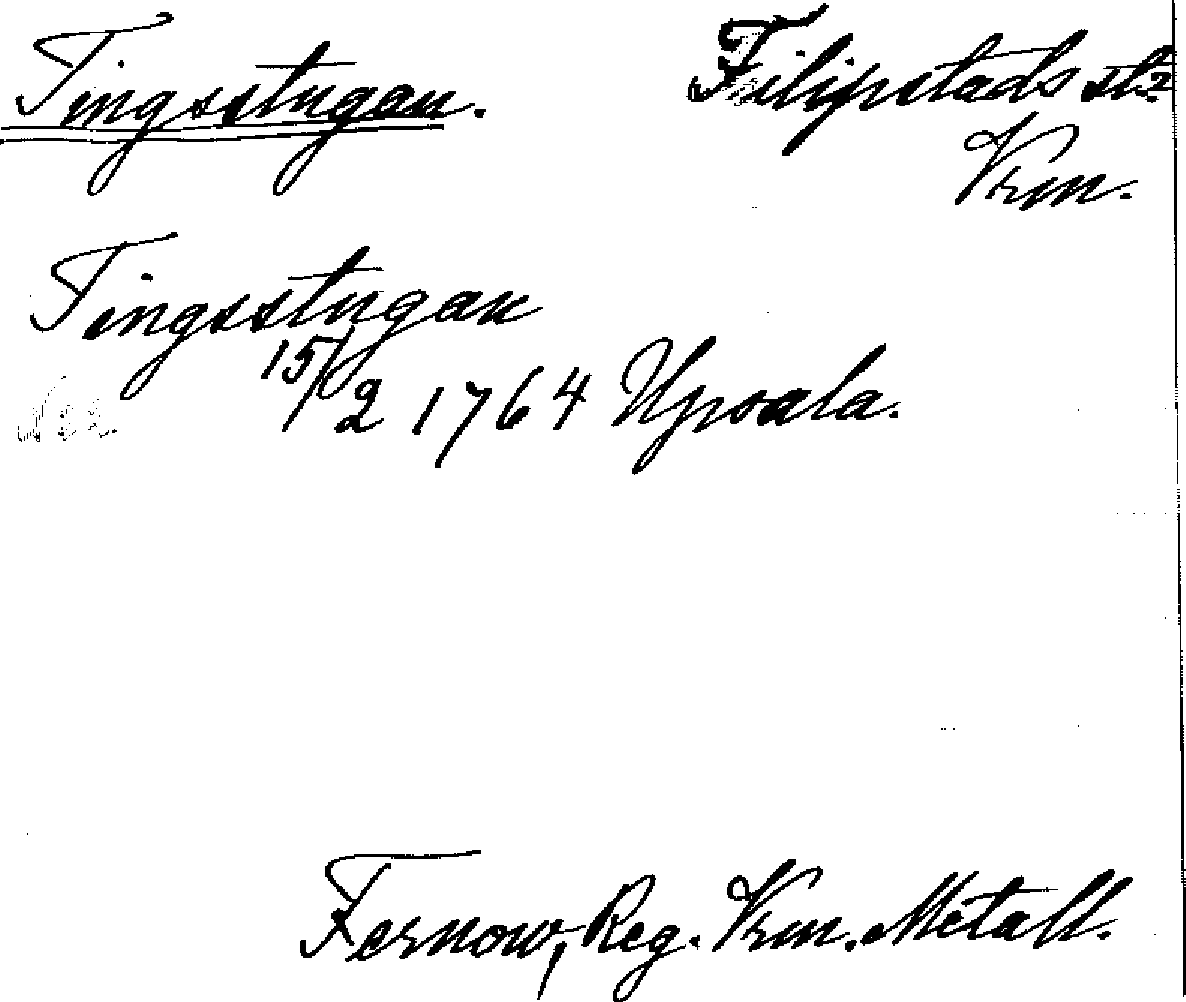 Tingsstugan. Filipstads st.
Vrm.
Tingsstugan
15/2 1764 Upsala.
Fernow, Reg. Vrm. Metall.